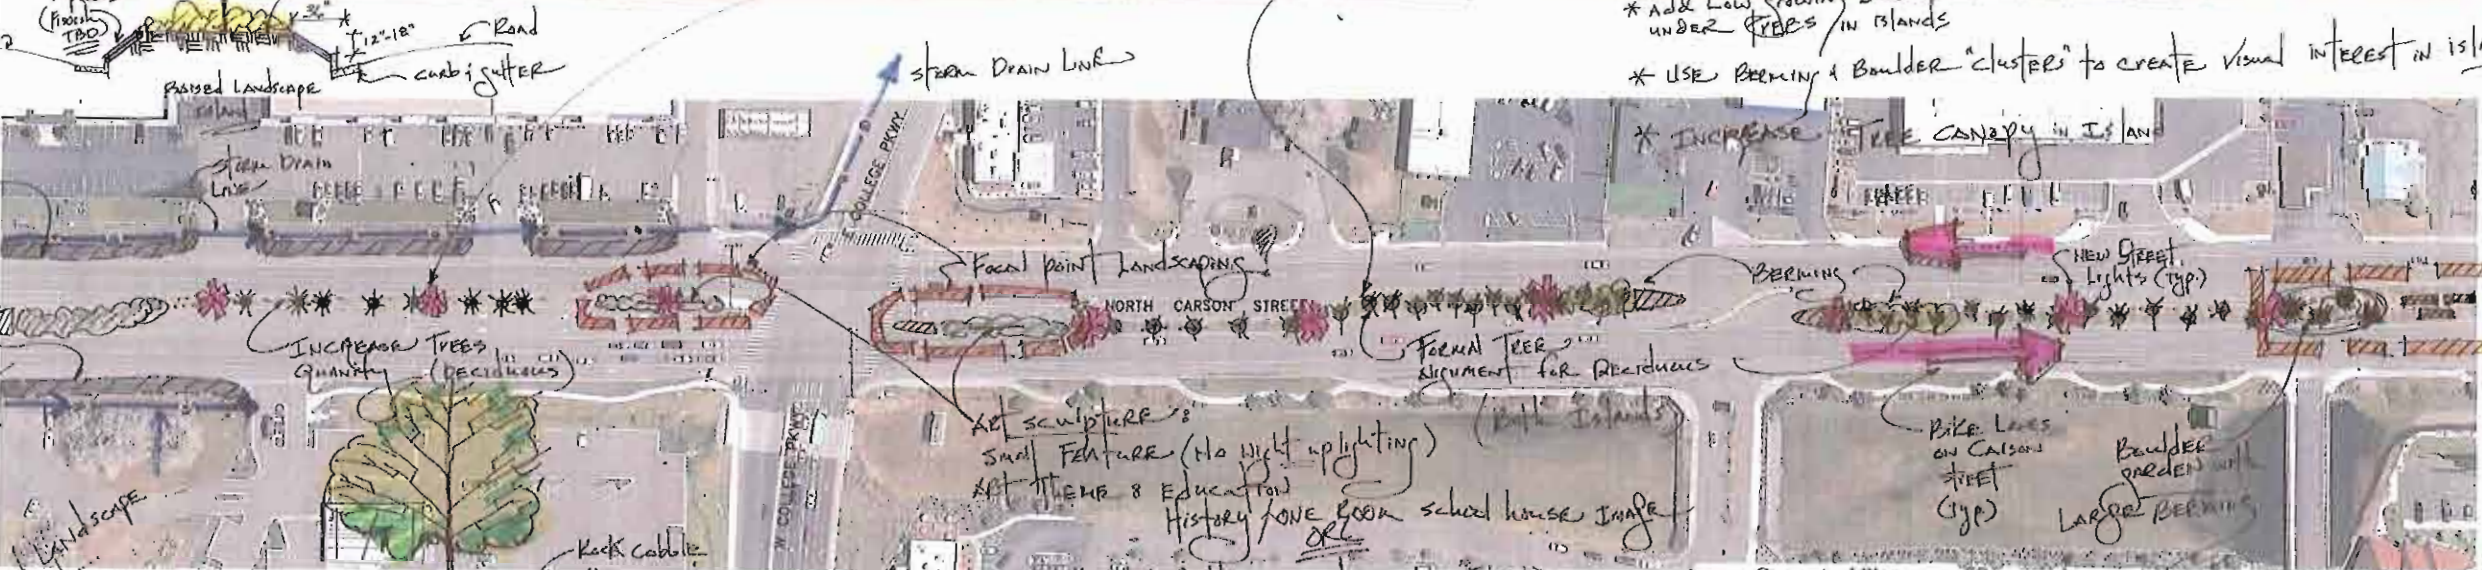 TBD
36"
12"-18"
Road
curb & gutter
Raised Landscape
Island
Storm Drain Line
* Add Low
under trees in Islands
* Use Berming & Boulder "clusters" to create visual interest in
* Increase Tree Canopy in Island
Storm Drain
Line
COLLEGE PKWY.
Focal point Landscaping
NORTH CARSON STREET
Berming
New Street
Lights (Typ.)
Increase Trees
Quantity (Deciduous)
Formal Tree
Alignment for Deciduous
(Both Islands)
W COLLEGE PKWY
Art sculpture:
Small Feature (No Night uplighting)
Art Theme: Education
History / One Room school house Image
OR
Bike Lanes
on Carson
Street
(Typ)
Boulder
garden with
Larger Berming
Landscape
Rock cobble